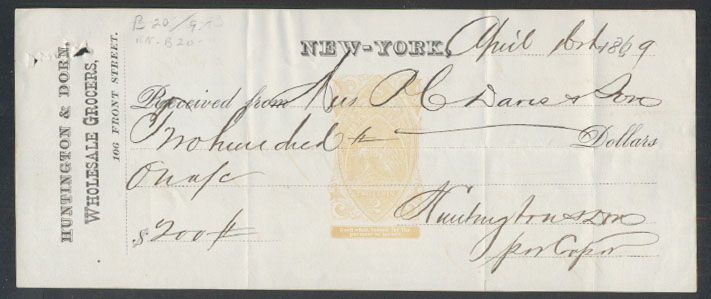 B-20/
RN-B20-
HUNTINGTON & DORN,
WHOLESALE GROCERS,
106 FRONT STREET.
NEW-YORK, April 1869
Received from A C Davis & Son
Two hundred Dollars
On a/c
$200
Huntington & Dorn